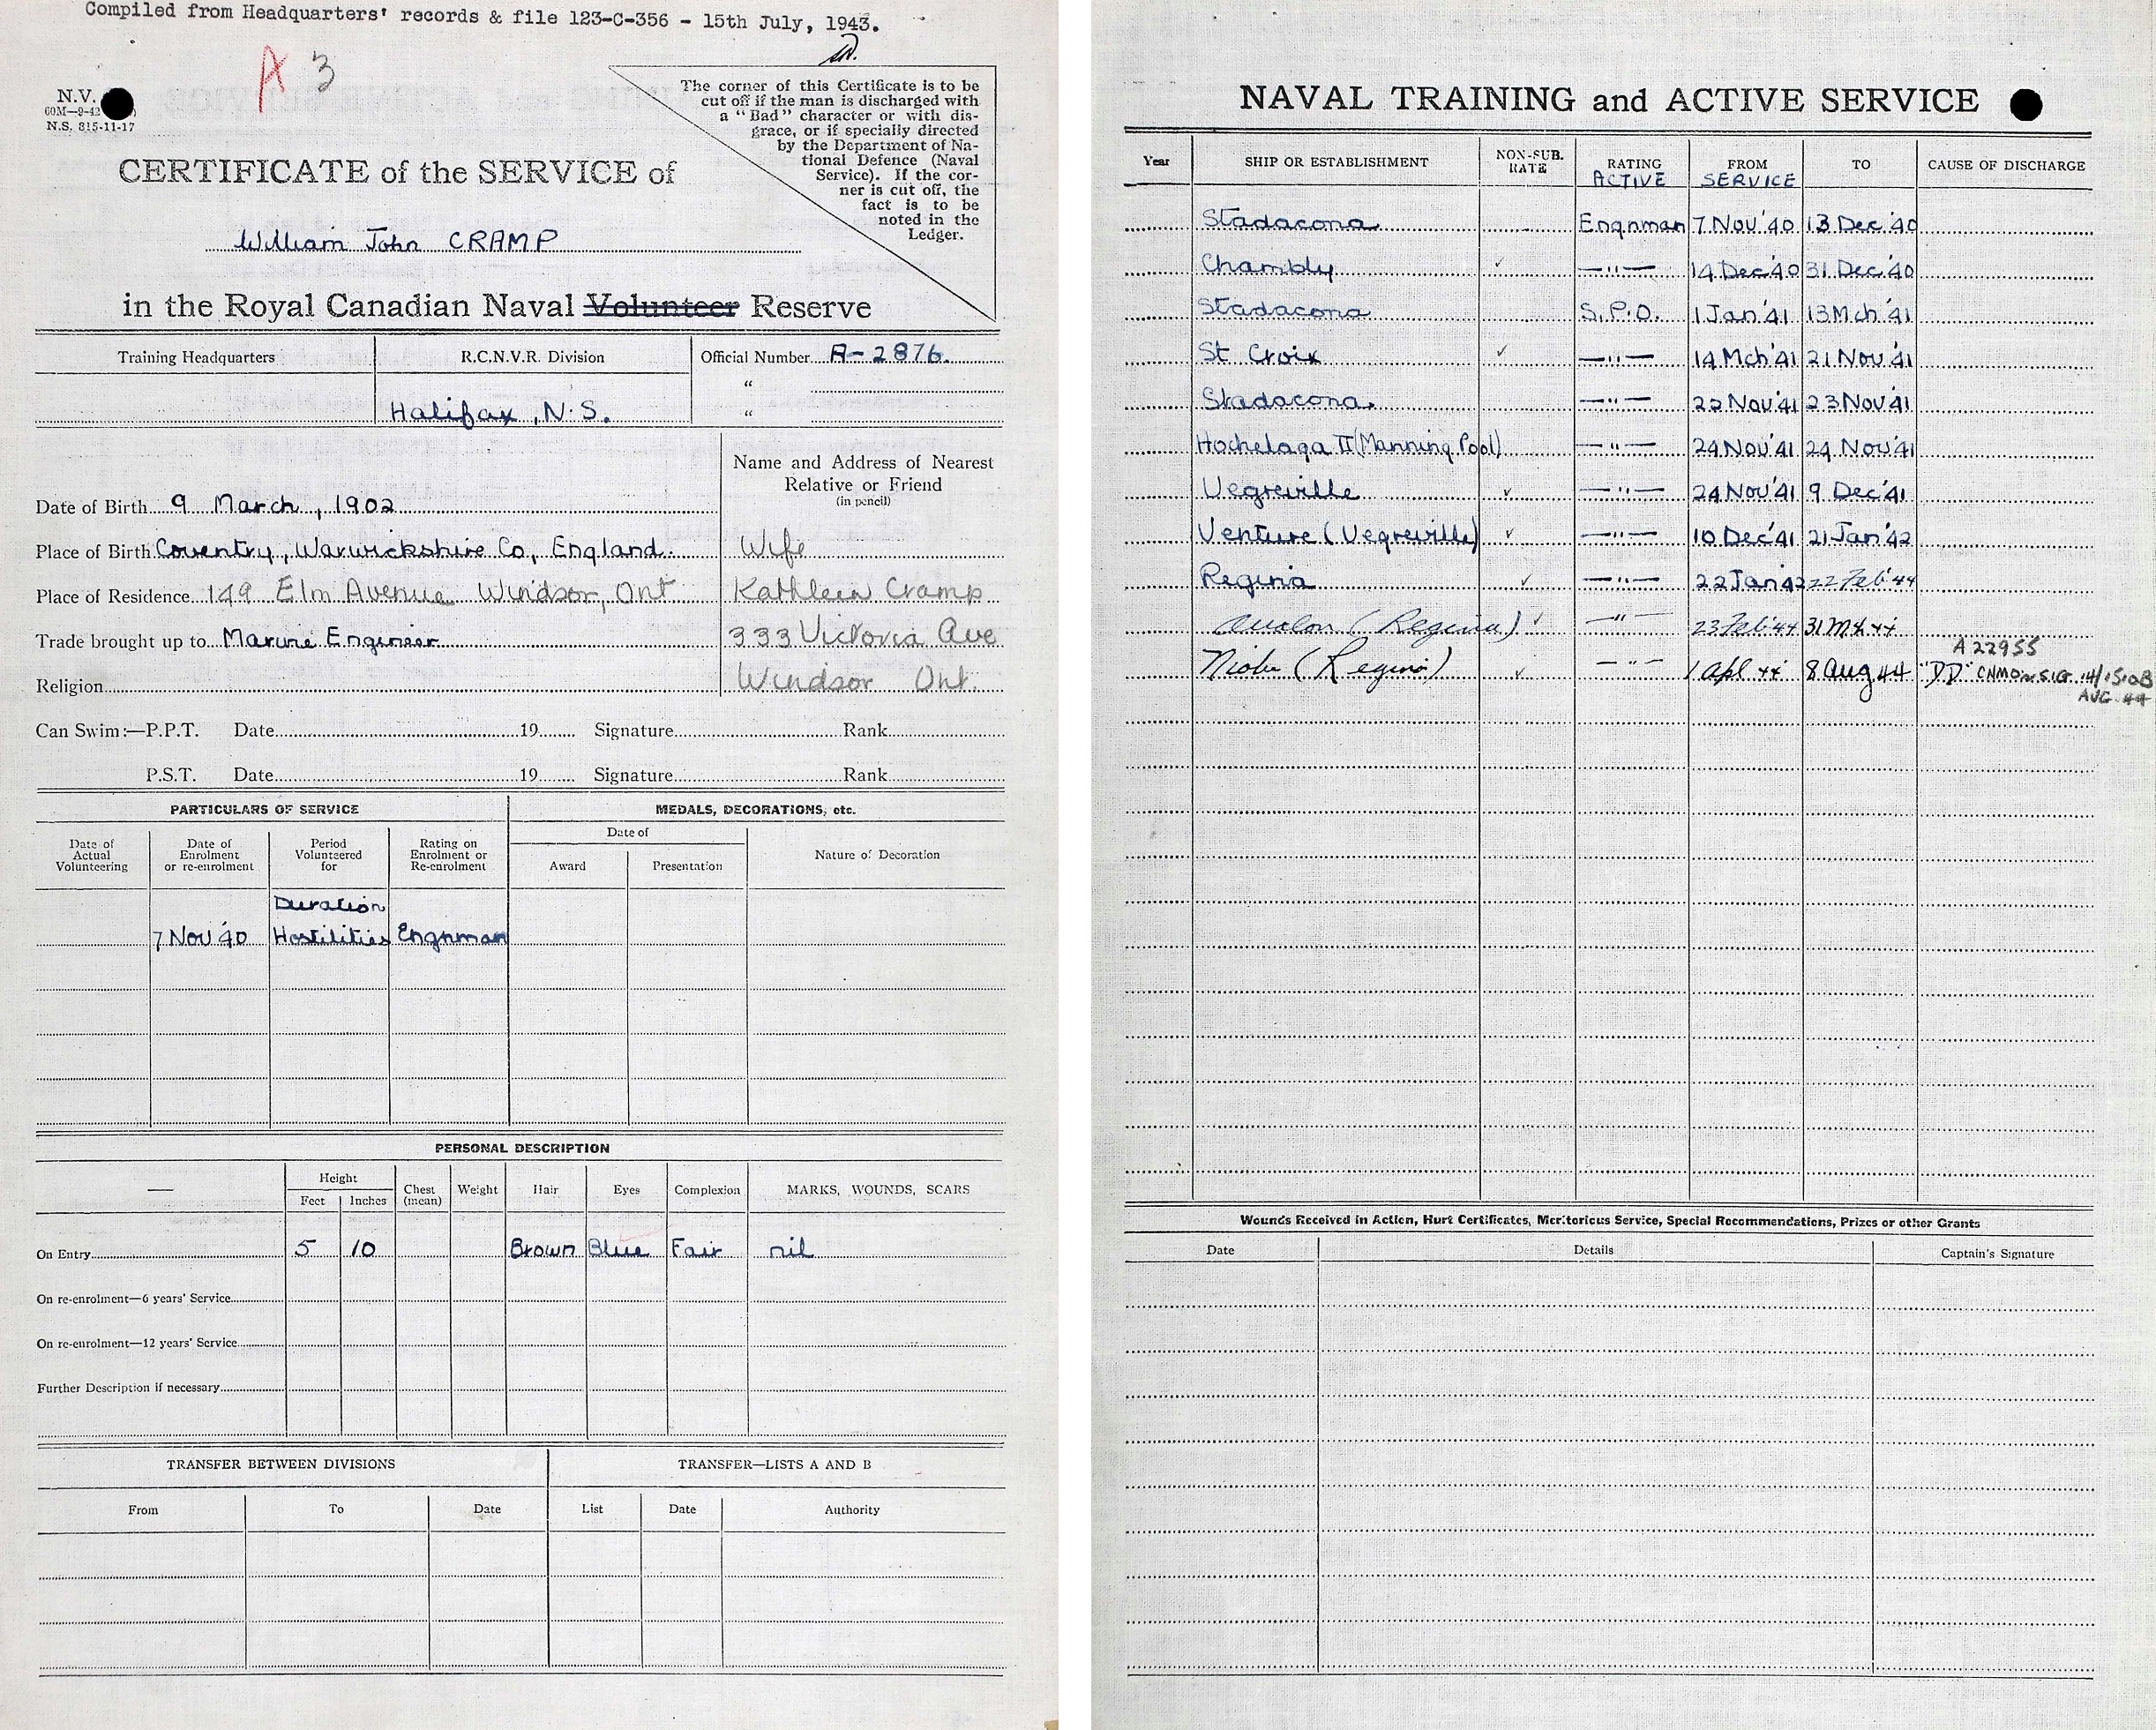 Compiled from Headquarters' records & file 123-C-356 - 15th July, 1943.
A 3
N.V.
60M—9-42
N.S. 815-11-17
The corner of this Certificate is to be
cut off if the man is discharged with
a "Bad" character or with dis-
grace, or if specially directed
by the Department of Na-
tional Defence (Naval
Service). If the cor-
ner is cut off, the
fact is to be
noted in the
Ledger.
CERTIFICATE of the SERVICE of
William John CRAMP
in the Royal Canadian Naval Volunteer Reserve
Training Headquarters R.C.N.V.R. Division Official Number A-2876.
"
Halifax, N.S. "
Name and Address of Nearest
Relative or Friend
(in pencil)
Date of Birth 9 March, 1902
Place of Birth Coventry, Warwickshire Co, England. Wife
Place of Residence 149 Elm Avenue Windsor, Ont Kathleen Cramp
Trade brought up to Marine Engineer 333 Victoria Ave
Religion Windsor Ont.
Can Swim:—P.P.T. Date 19 Signature Rank
P.S.T. Date 19 Signature Rank
PARTICULARS OF SERVICE MEDALS, DECORATIONS, etc.
Date of Actual Volunteering Date of Enrolment or re-enrolment Period Volunteered for Rating on Enrolment or Re-enrolment Date of Award Presentation Nature of Decoration
Duration
7 Nov '40 Hostilities Engnman
PERSONAL DESCRIPTION
— Height Feet Inches Chest (mean) Weight Hair Eyes Complexion MARKS, WOUNDS, SCARS
On Entry 5 10 Brown Blue Fair nil
On re-enrolment—6 years' Service
On re-enrolment—12 years' Service
Further Description if necessary
TRANSFER BETWEEN DIVISIONS TRANSFER—LISTS A AND B
From To Date List Date Authority
NAVAL TRAINING and ACTIVE SERVICE
Year SHIP OR ESTABLISHMENT NON-SUB. RATE RATING FROM TO CAUSE OF DISCHARGE
ACTIVE SERVICE
Stadacona Engnman 7 Nov '40 13 Dec '40
Chambly ✓ —"— 14 Dec '40 31 Dec '40
Stadacona S.P.O. 1 Jan '41 13 Mch '41
St Croix ✓ —"— 14 Mch '41 21 Nov '41
Stadacona. —"— 22 Nov '41 23 Nov '41
Hochelaga II (Manning Pool) —"— 24 Nov '41 24 Nov '41
Vegreville ✓ —"— 24 Nov '41 9 Dec '41
Venture (Vegreville) ✓ —"— 10 Dec '41 21 Jan '42
Regina ✓ —"— 22 Jan 42 22 Feb '44
Avalon (Regina) ✓ —"— 23 Feb '44 31 Mch 44
A 22955
Niobe (Regina) ✓ —"— 1 Apl 44 8 Aug 44 "DD" CNMO's SIG
AUG 44
Wounds Received in Action, Hurt Certificates, Meritorious Service, Special Recommendations, Prizes or other Grants
Date Details Captain's Signature